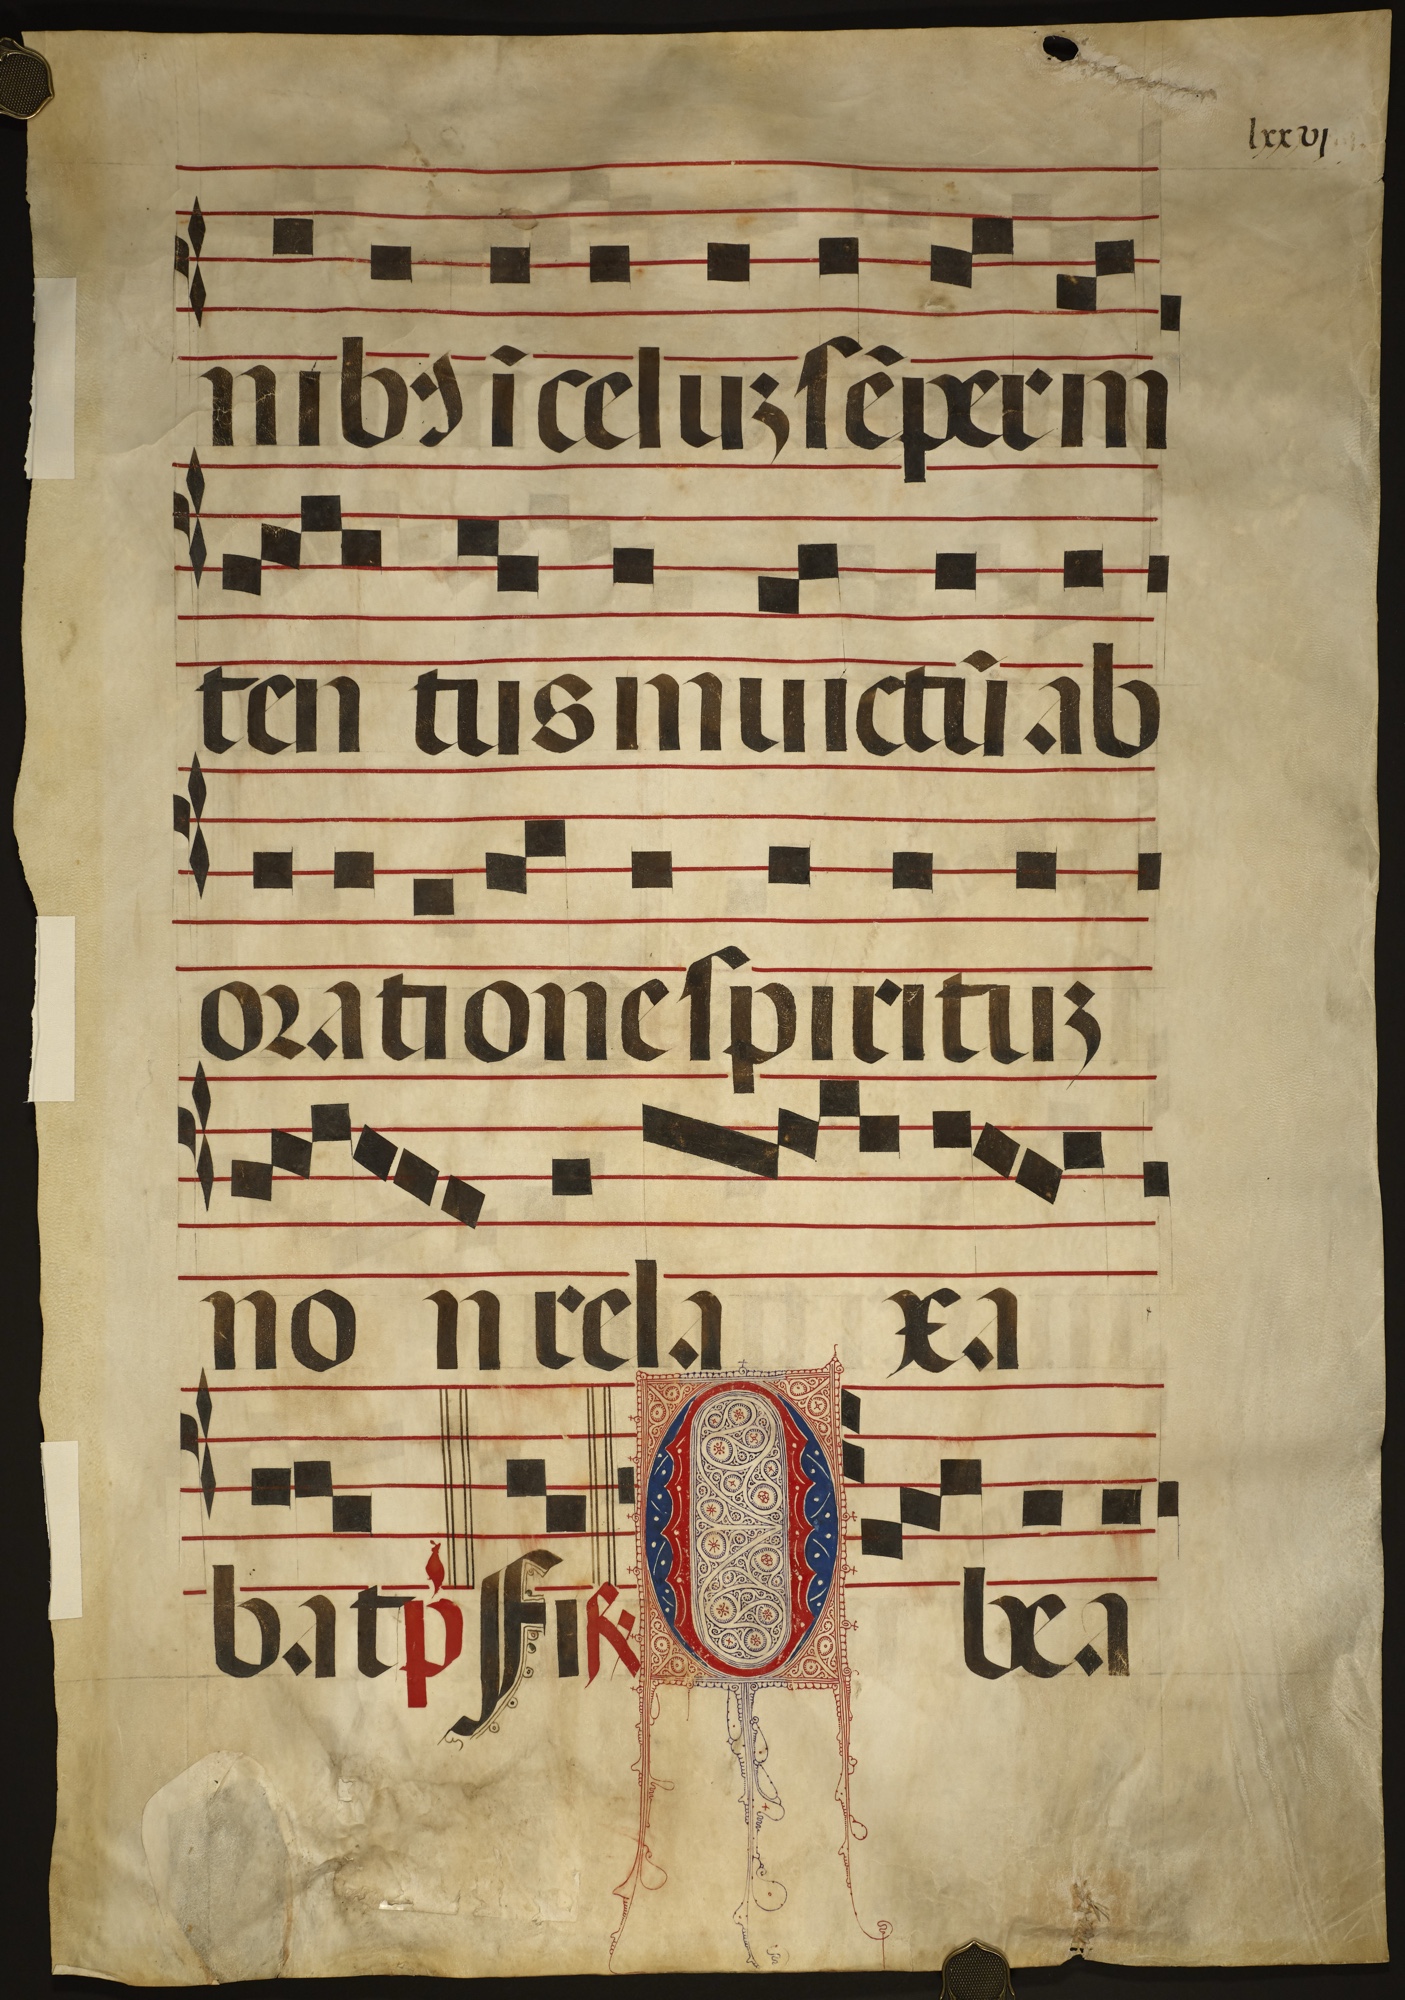 lxxvi
nibꝰ ⁊ i celuꝫ sēper in
ten tus in uictū ab
oratione spirituꝫ
no n rela xa
bat p̄ Fi ꝶ. O bea